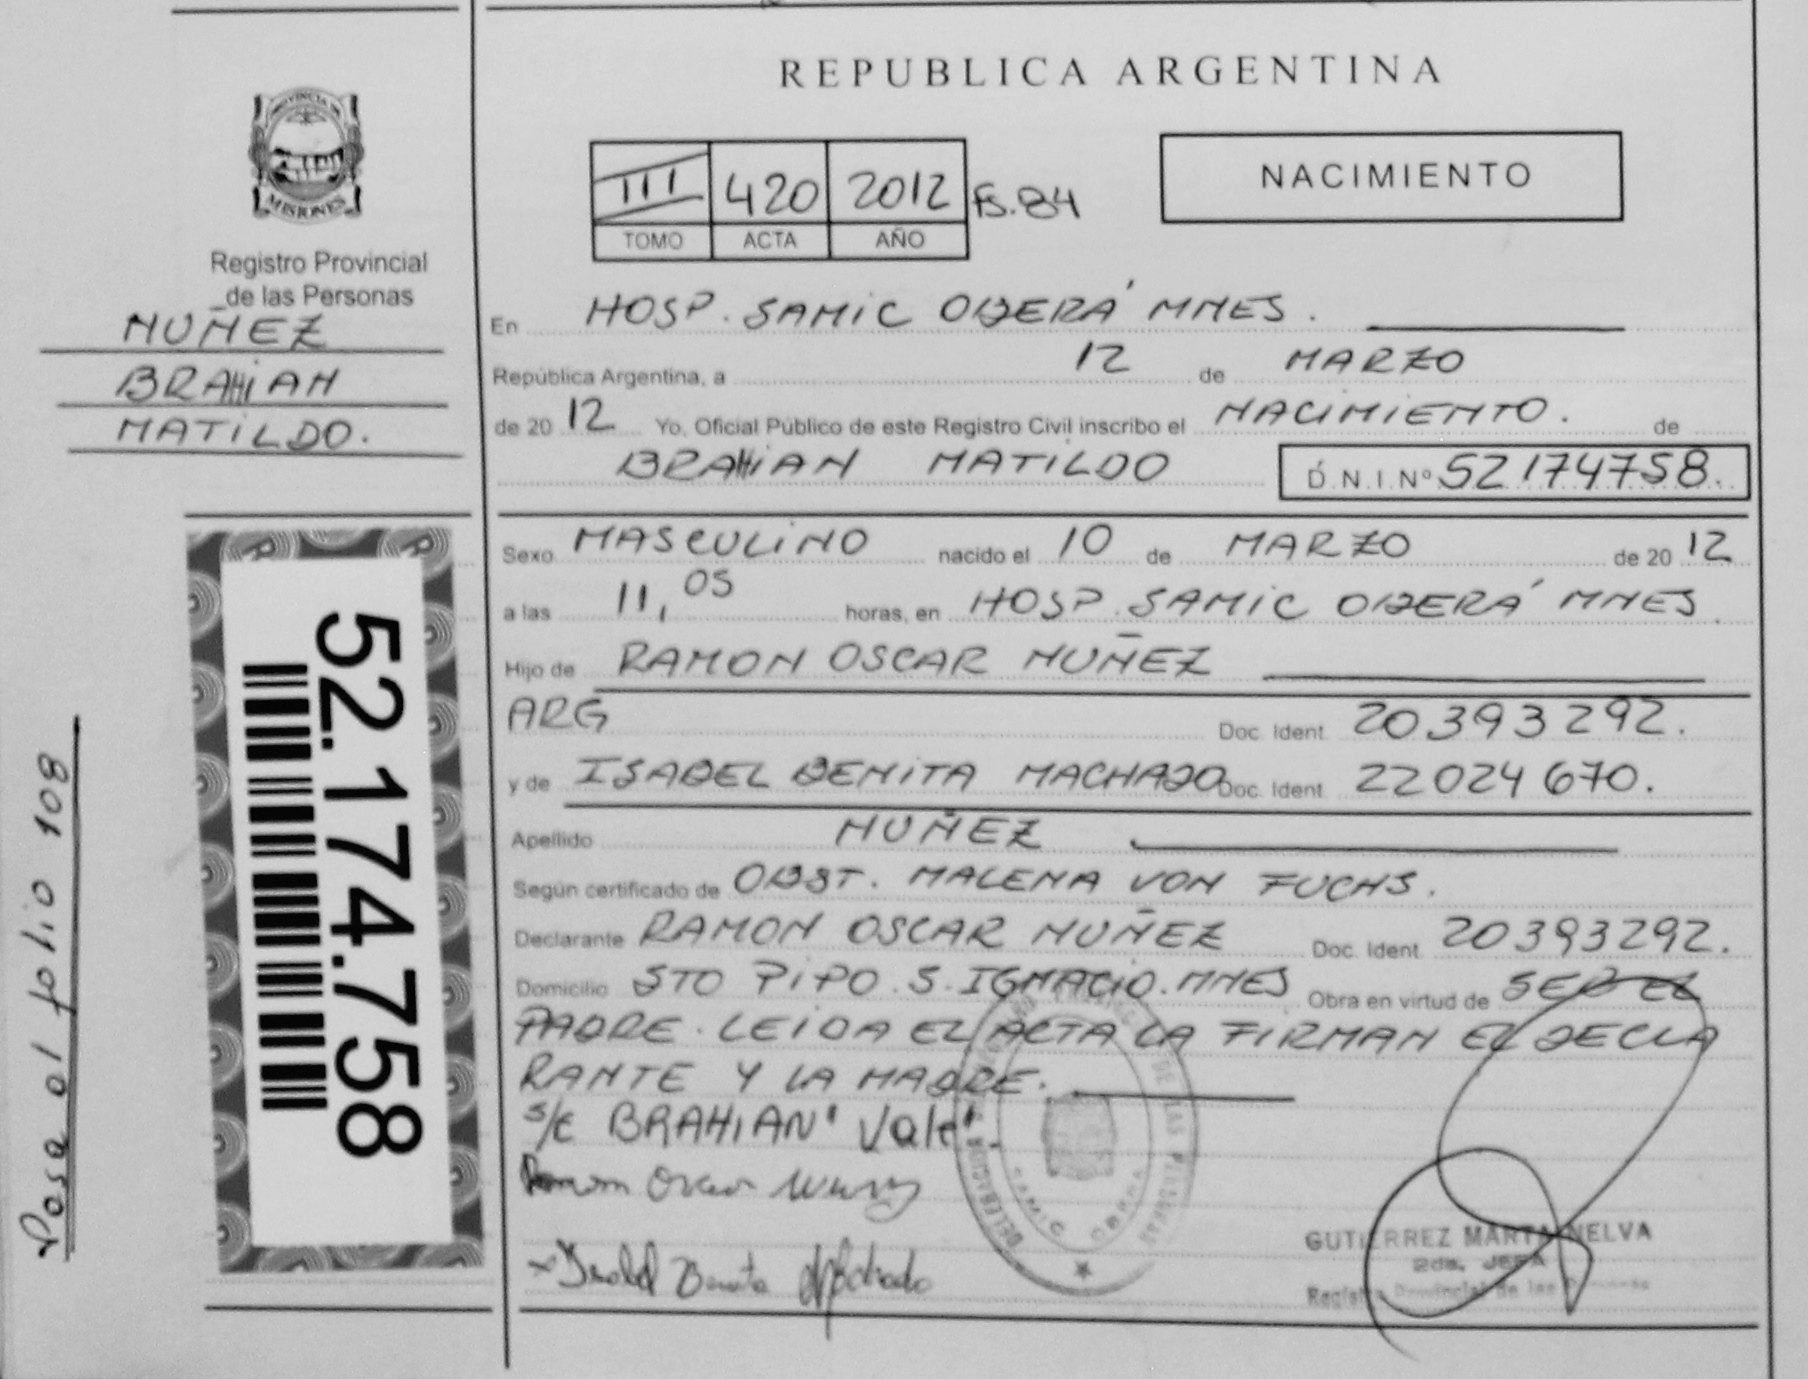 REPUBLICA ARGENTINA
PROVINCIA DE
MISIONES
Registro Provincial
de las Personas
NUÑEZ
BRAHIAN
MATILDO.
52.174.758
Pasa al folio 108
III 420 2012 Fs.84
TOMO ACTA AÑO
NACIMIENTO
En HOSP. SAMIC OBERÁ MNES.
República Argentina, a 12 de MARZO
de 2012 Yo, Oficial Público de este Registro Civil inscribo el NACIMIENTO. de
BRAHIAN MATILDO D.N.I.Nº 52174758.
Sexo MASCULINO nacido el 10 de MARZO de 2012
a las 11,05 horas, en HOSP. SAMIC OBERÁ MNES.
Hijo de RAMON OSCAR NUÑEZ
ARG Doc. Ident. 20393292.
y de ISABEL BENITA MACHADO Doc. Ident. 22024670.
Apellido NUÑEZ
Según certificado de OBST. MALENA VON FUCHS.
Declarante RAMON OSCAR NUÑEZ Doc. Ident. 20393292.
Domicilio STO PIPO. S. IGNACIO. MNES Obra en virtud de SER EL
PADRE. LEIDA EL ACTA LA FIRMAN EL DECLA
RANTE Y LA MADRE.
s/e BRAHIAN' Vale.
Ramon Oscar Nuñez
Isabel Benita Machado
DE LAS PERSONAS
SAMIC OBERA
GUTIERREZ MARTA NELVA
2da. JEFA
Registro Provincial de las Personas